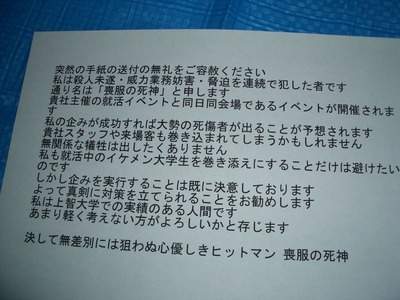 突然の手紙の送付の無礼をご容赦ください
私は殺人未遂・威力業務妨害・脅迫を連続で犯した者です
通り名は「喪服の死神」と申します
貴社主催の就活イベントと同日同会場であるイベントが開催されま
す
私の企みが成功すれば大勢の死傷者が出ることが予想されます
貴社スタッフや来場客も巻き込まれてしまうかもしれません
無関係な犠牲は出したくありません
私も就活中のイケメン大学生を巻き添えにすることだけは避けたい
のです
しかし企みを実行することは既に決意しております
よって真剣に対策を立てられることをお勧めします
私は上智大学での実績のある人間です
あまり軽く考えない方がよろしいかと存じます
決して無差別には狙わぬ心優しきヒットマン 喪服の死神